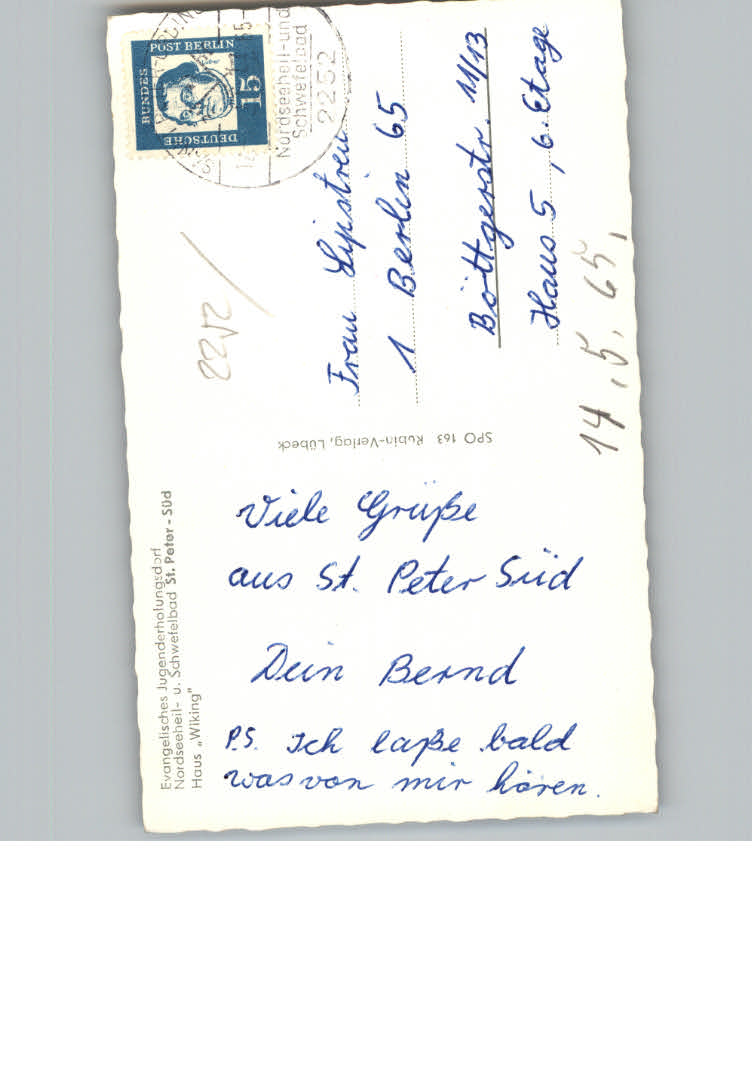 Evangelisches Jugenderholungsdorf
Nordseeheil- u. Schwefelbad St. Peter-Süd
Haus „Wiking"
Viele Grüße
aus St. Peter Süd
Dein Bernd
P.S. Ich laße bald
was von mir hören.
SPO 163 Rubin-Verlag, Lübeck
DEUTSCHE BUNDES POST BERLIN
15
2252
Nordseeheil-und
Schwefelbad
Frau Lipstreu
1 Berlin 65
Böttgerstr. 11/13
Haus 5, 6. Etage
14.5.65.